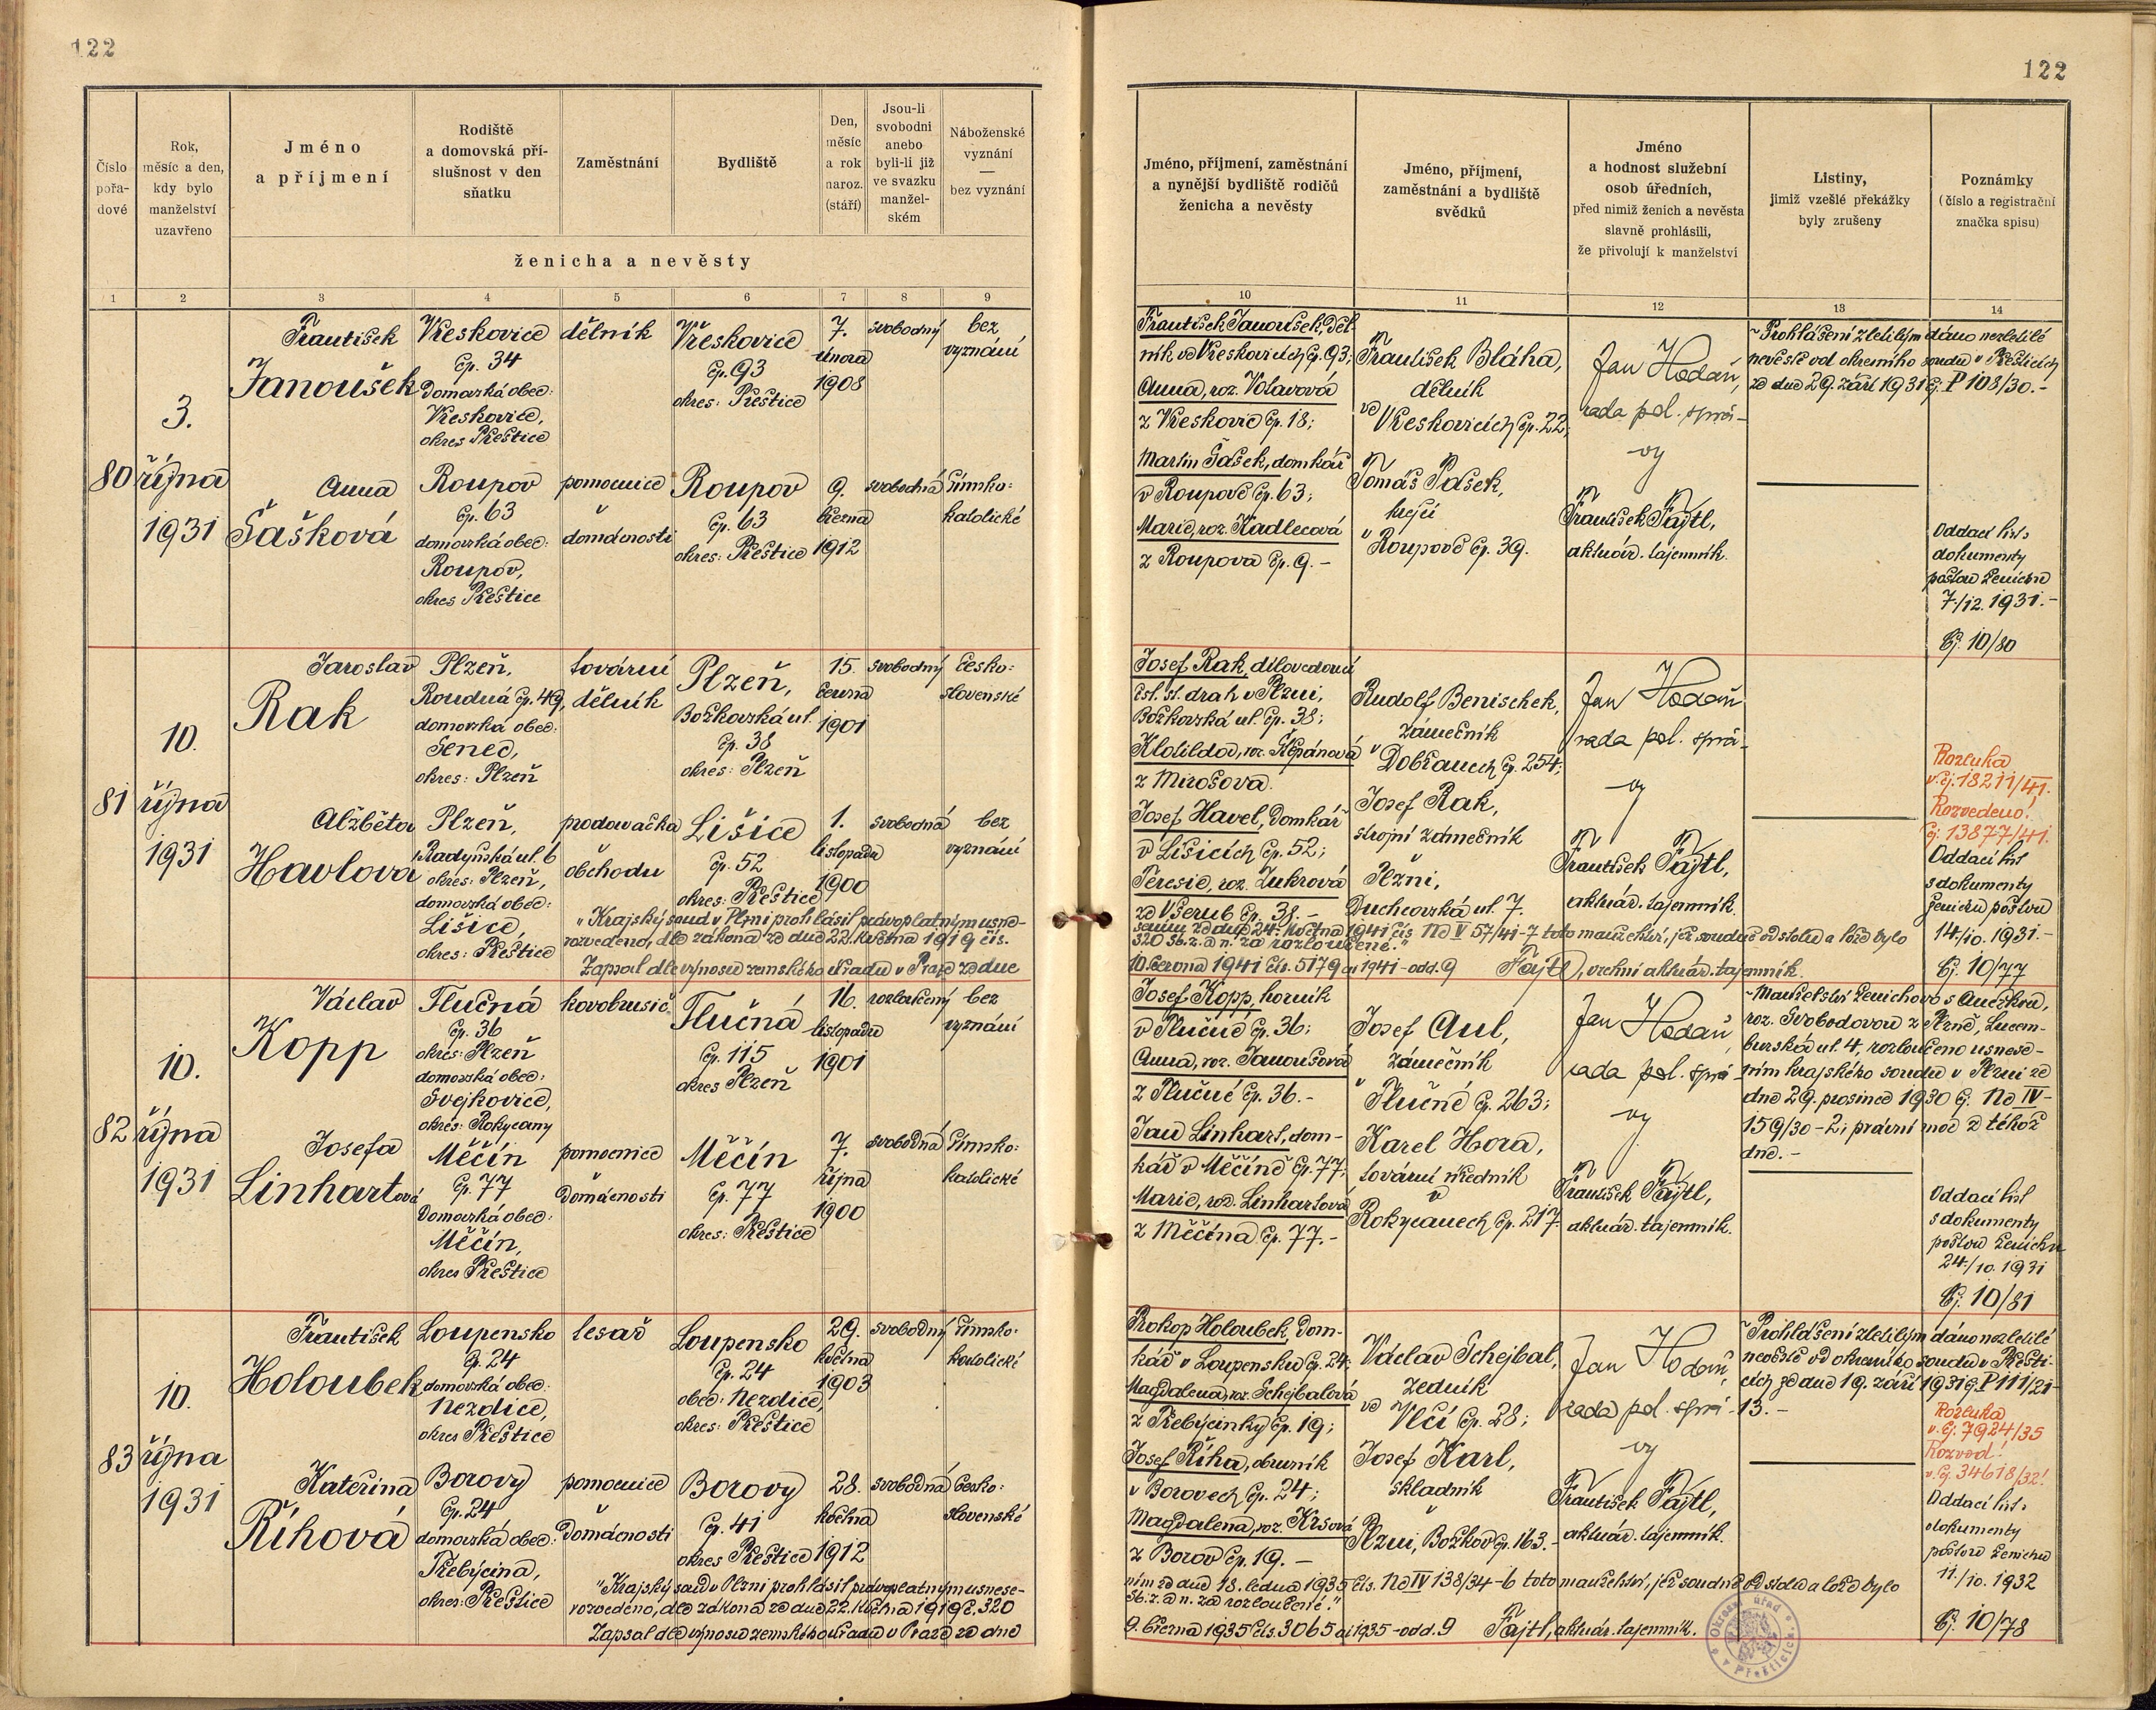 122
122
Číslo pořa- dové
Rok, měsíc a den, kdy bylo manželství uzavřeno
Jméno a příjmení
Rodiště a domovská pří- slušnost v den sňatku
Zaměstnání
Bydliště
Den, měsíc a rok naroz. (stáří)
Jsou-li svobodni anebo byli-li již ve svazku manžel- ském
Náboženské vyznání — bez vyznání
ženicha a nevěsty
1 2 3 4 5 6 7 8 9
Jméno, příjmení, zaměstnání a nynější bydliště rodičů ženicha a nevěsty
Jméno, příjmení, zaměstnání a bydliště svědků
Jméno a hodnost služební osob úředních, před nimiž ženich a nevěsta slavně prohlásili, že přivolují k manželství
Listiny, jimiž vzešlé překážky byly zrušeny
Poznámky (číslo a registrační značka spisu)
10 11 12 13 14
80
3.
října
1931
František
Janoušek
Vřeskovice
čp. 34
Domovská obec:
Vřeskovice,
okres Přeštice
dělník
Vřeskovice
čp. 93
okres: Přeštice
7.
února
1908
svobodný
bez
vyznání
Anna
Šašková
Roupov
čp. 63
domovská obec:
Roupov,
okres Přeštice
pomocnice
v
domácnosti
Roupov
čp. 63
okres: Přeštice
9.
března
1912
svobodná
římsko-
katolické
František Janoušek, děl-
ník ve Vřeskovicích čp. 93;
Anna, roz. Votavová
z Vřeskovic čp. 18;
Martin Šašek, domkář
v Roupově čp. 63;
Marie, roz. Kadlecová
z Roupova čp. 9. -
František Bláha,
dělník
ve
Vřeskovicích čp. 22;
Tomáš Pašek,
hejný
v
Roupově čp. 39.
Jan Hodaň,
rada pol. sprá-
vy
František Fajtl,
aktuár. tajemník.
~ Prohlášení zletilým dáno nezletilé
nevěstě od okresního soudu v Přešticích
ze dne 29. září 1931 čj. P 108/30. -
Oddací list s
dokumenty
poštou ženichu
7./12. 1931. -
Čj. 10/80
81
10.
října
1931
Jaroslav
Rak
Plzeň,
Roudná čp. 49,
domovská obec:
Senec,
okres: Plzeň
tovární
dělník
Plzeň,
Božkovská ul.
čp. 38
okres: Plzeň
15.
června
1901
svobodný
česko-
slovenské
Alžběta
Havlová
Plzeň,
Radyňská ul. 6
okres: Plzeň,
domovská obec:
Lišice,
okres: Přeštice
prodavačka
obchodu
Lišice
čp. 52
okres: Přeštice
1.
listopadu
1900
svobodná
bez
vyznání
Josef Rak, dílovedoucí
čsl. st. drah v Plzni,
Božkovská ul. čp. 38;
Klotilda, roz. Štěpánová
z Mirošova.
Josef Havel, Domkář
v Lišicích čp. 52;
Terezie, roz. Zukrová
ze Všerub čp. 38. -
Rudolf Benischek,
zámečník
v
Dobřanech čp. 254;
Josef Rak,
strojní zámečník
Plzni,
Duchcovská ul. 7.
Jan Hodaň
rada pol. sprá-
vy
František Fajtl,
aktuár. tajemník.
Rozluka
v. čj. 18211/41.
Rozvedeno!
čj. 13877/41.
Oddací list
s dokumenty
ženichu poštou
14./10. 1931. -
Čj. 10/77
"Krajský soud v Plzni prohlásil právoplatným usne-
sením ze dne 24. května 1941 čís Nc V 57/41-7 toto manželství, jež soudně od stolu a lože bylo
rozvedeno, dle zákona ze dne 22. května 1919 čís.
320 Sb. z. a n. za rozloučené."
Zapsal dle výnosu zemského úřadu v Praze ze dne
10. června 1941 čís. 5179 ai 1941 - odd. 9 Fajtl, vrchní aktuár. tajemník.
82
10.
října
1931
Václav
Kopp
Tlučná
čp. 36
okres: Plzeň
domovská obec:
Svejkovice,
okres: Rokycany
kovobrusič
Tlučná
čp. 115
okres Plzeň
16.
listopadu
1901
rozloučený
bez
vyznání
Josefa
Linhartová
Měčín
čp. 77
Domovská obec:
Měčín,
okres Přeštice
pomocnice
v
Domácnosti
Měčín
čp. 77
okres: Přeštice
7.
října
1900
svobodná
římsko-
katolické
Josef Kopp, horník
v Tlučné čp. 36;
Anna, roz. Janoušová
z Tlučné čp. 36. -
Jan Linhart, dom-
kář v Měčíně čp. 77;
Marie, roz. Linhartová
z Měčína čp. 77. -
Josef Aul,
zámečník
v
Tlučné čp. 263;
Karel Hora,
tovární úředník
v
Rokycanech čp. 217.
Jan Hodaň
rada pol. sprá-
vy
František Fajtl,
aktuár. tajemník.
~ Manželství ženichovo s Anežkou,
roz. Svobodovou z Plzně, Lucem-
burská ul. 4, rozloučeno usnese-
ním krajského soudu v Plzni ze
dne 29. prosince 1930 čj. Nc IV -
159/30 - 2; právní moc z téhož
dne. -
Oddací list
s dokumenty
poštou ženichu
24./10. 1931
Čj. 10/81
83
10.
října
1931
František
Holoubek
Loupensko
čp. 24
domovská obec:
Nezdice,
okres Přeštice
tesař
Loupensko
čp. 24
obec: Nezdice,
okres: Přeštice
29.
května
1903
svobodný
římsko-
katolické
Kateřina
Říhová
Borovy
čp. 24
domovská obec:
Třebýcina,
okres: Přeštice
pomocnice
v
Domácnosti
Borovy
čp. 41
okres Přeštice
28.
května
1912
svobodná
česko-
slovenské
Prokop Holoubek, Dom-
kář v Loupensku čp. 24;
Magdalena, roz. Schejbalová
z Třebýcinky čp. 19;
Josef Říha, obuvník
v Borovech čp. 24;
Magdalena, roz. Krsová
z Borov čp. 19. -
Václav Schejbal,
zedník
ve
Vlčí čp. 28;
Josef Karl,
skladník
v
Plzni, Božkov čp. 163. -
Jan Hodaň,
rada pol. sprá-
vy
František Fajtl,
aktuár. tajemník.
~ Prohlášení zletilým dáno nezletilé
nevěstě od okresního soudu v Přešti-
cích ze dne 19. září 1931 čj. P 111/21-
13. -
Rozluka
v. čj. 7924/35
Rozvod!
v. čj. 34618/32!
Oddací list s
dokumenty
poštou ženichu
11./10. 1932
Čj. 10/78
"Krajský soud v Plzni prohlásil právoplatným usnese-
ním ze dne 18. ledna 1935 čís. Nc IV 138/34-6 toto manželství, jež soudně od stolu a lože bylo
rozvedeno, dle zákona ze dne 22. května 1919 č. 320
Sb. z. a n. za rozloučené."
Zapsal dle výnosu zemského úřadu v Praze ze dne
9. března 1935 čís. 3065 ai 1935 - odd. 9 Fajtl, aktuár. tajemník.
Okresní úřad
v Přešticích